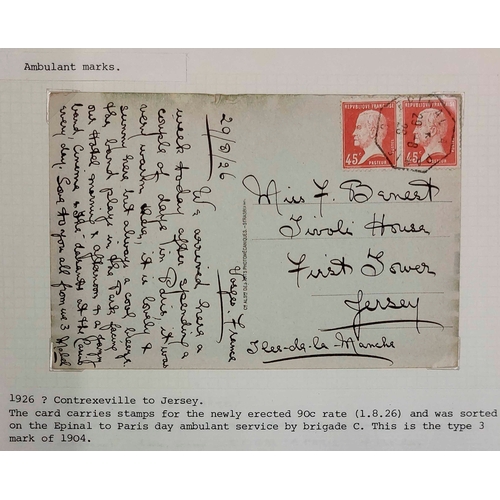 Ambulant marks.
29/8/26
Vosges. France
We arrived here a
week today after spending a
couple of days in Paris, it was
very warm
sunny here but always a cool breeze.
the band plays in the Park facing
our Hotel morning & afternoon & a jazz
band Cinema & the dances at the Casino
every day. Love to you all from us 3 Mabel
REPUBLIQUE FRANÇAISE
45c
PASTEUR
REPUBLIQUE FRANÇAISE
45c
PASTEUR
Miss F. Benest
Tivoli House
First Tower
Jersey
Iles-de-la-Manche
1926 ? Contrexeville to Jersey.
The card carries stamps for the newly erected 90c rate (1.8.26) and was sorted
on the Epinal to Paris day ambulant service by brigade C. This is the type 3
mark of 1904.